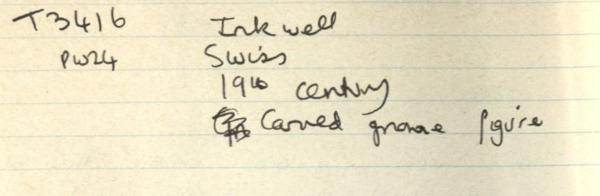 T3416 Inkwell
PW24 Swiss
19th century
Carved gnome figure